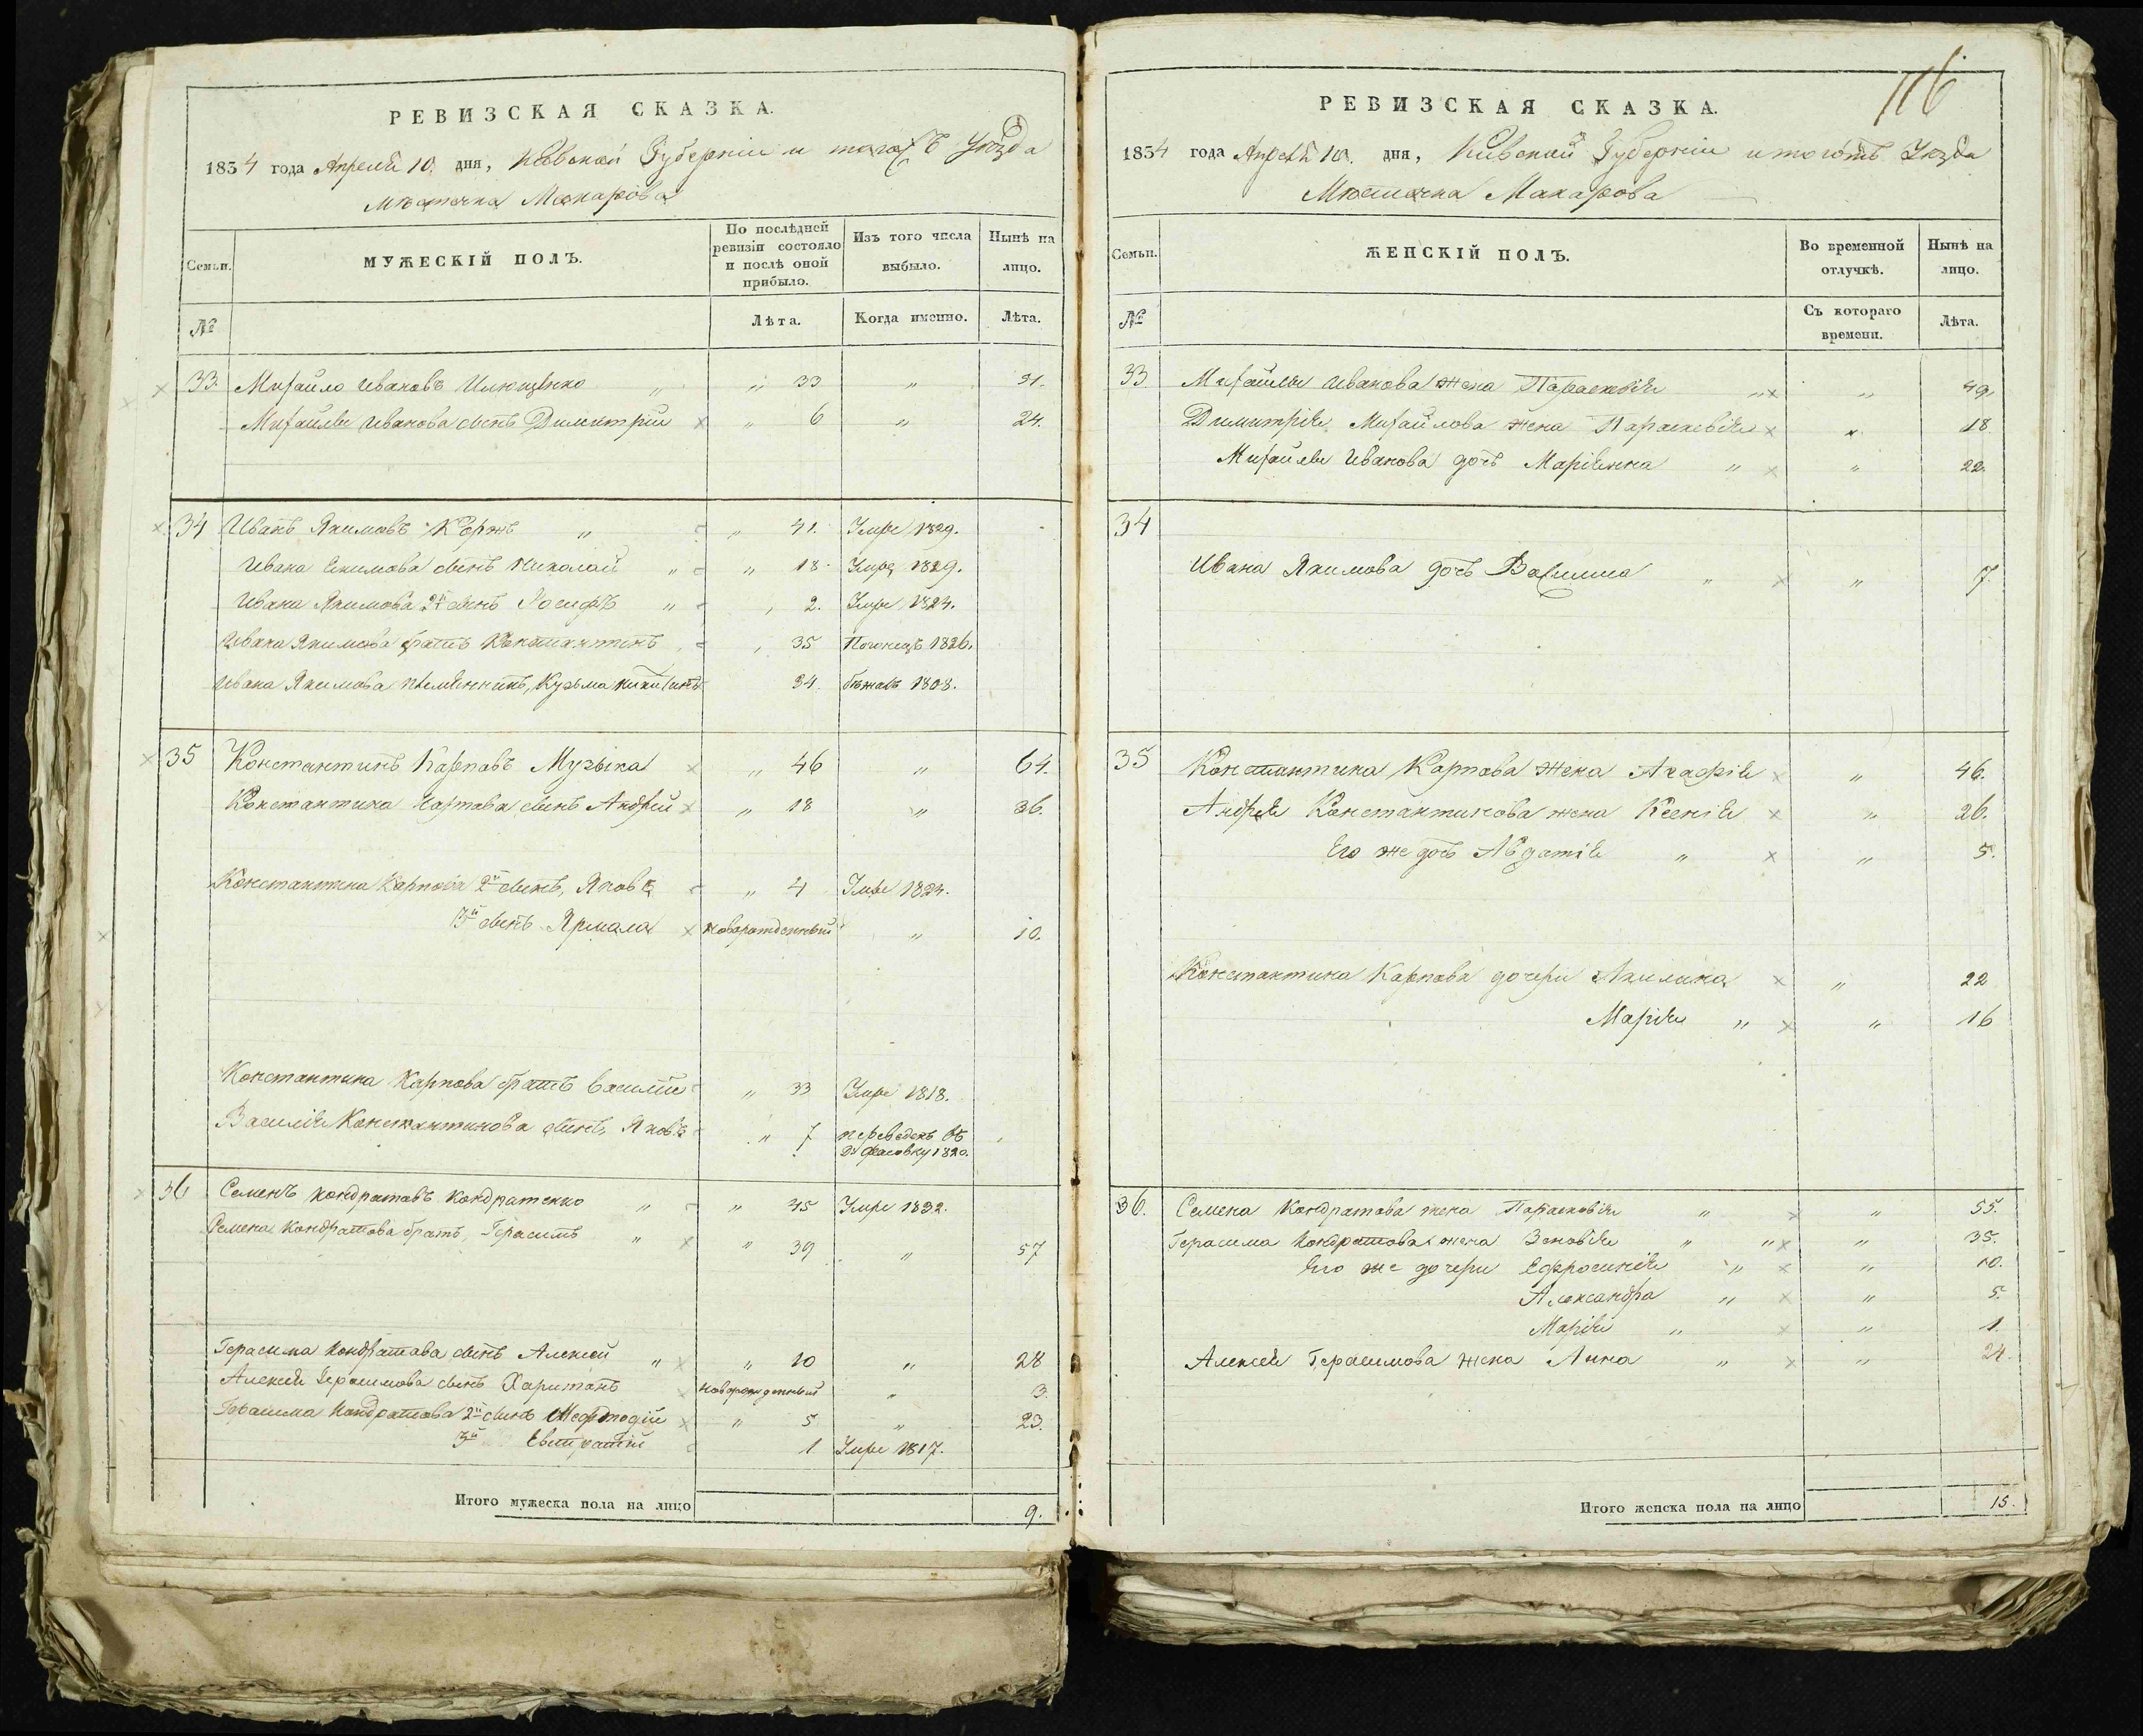 РЕВИЗСКАЯ СКАЗКА.
1834 года Апреля 10. дня, Киевской Губернiи и того Уѣзда
Мѣстечка Макарова
Семьи.
МУЖЕСКIЙ ПОЛЪ.
По послѣдней ревизiи состояло и послѣ оной прибыло.
Изъ того числа выбыло.
Нынѣ на лицо.
№
Лѣта.
Когда именно.
Лѣта.
33. Михайло Ивановъ „ „ 33 „ 51.
Михайлы Иванова сынъ Димитрiй „ 6 „ 24.
34 Иванъ Якимовъ Коржъ „ „ 41. Умре 1829.
Ивана Екимова сынъ Николай „ „ 18. Умре 1829.
Ивана Якимова 2й сынъ Iосифъ „ 2. Умре 1824.
Ивана Якимова братъ Константинъ 35 1826.
Ивана Якимова племѣнникъ, Кузьма 34. бѣжалъ 1808.
35 Константинъ Карповъ Музыка „ 46 „ 64.
Константина Карпова сынъ Андрей „ 18 „ 36.
Константина Карпова 2й сынъ, Яковъ „ 4 Умре 1824.
3й сынъ Ярмола новорожденный „ 10.
Константина Карпова братъ Василiй „ 33 Умре 1818.
Василiя Константинова сынъ, Яковъ „ 7 переведенъ въ
1820.
36 Семенъ Кондратовъ Кондратенко „ „ 45 Умре 1832.
Семена Кондратова братъ, Герасимъ „ „ 39 „ 57
Герасима Кондратова сынъ Алексей „ „ 10 „ 28
Алексея Герасимова сынъ Харитонъ новорожденный „ 3.
Герасима Кондратова 2й сынъ Мефтодiй „ 5 „ 23.
3й Евстратiй 1 Умре 1817.
Итого мужеска пола на лицо 9.
116
РЕВИЗСКАЯ СКАЗКА.
1834 года Апреля 10. дня, Киевской Губернiи и тогожъ Уѣзда
Мѣстечка Макарова
Семьи.
ЖЕНСКIЙ ПОЛЪ.
Во временной отлучкѣ.
Нынѣ на лицо.
№
Съ котораго времени.
Лѣта.
33 Михайлы Иванова жена Параскевiя „ „ 49.
Димитрiя Михайлова жена Параскевiя „ 18.
Михайлы Иванова дочь Марiянна „ „ 22.
34
Ивана Якимова дочь „ „ 7.
35 Константина Карпова жена Агафiя „ 46.
Андрея Константинова жена Ксенiя „ 26.
Его же дочь Авдотiя „ „ 5.
Константина Карпова дочери Акилина „ 22
Марiя „ „ 16
36. Семена Кондратова жена Параскевiя „ „ 55.
Герасима Кондратова жена Зеновiя „ „ „ 35.
Его же дочери Ефросинiя „ „ 10.
Александра „ „ 5.
Марiя „ „ 1.
Алексея Герасимова жена Анна „ „ 24.
Итого женска пола на лицо 15.